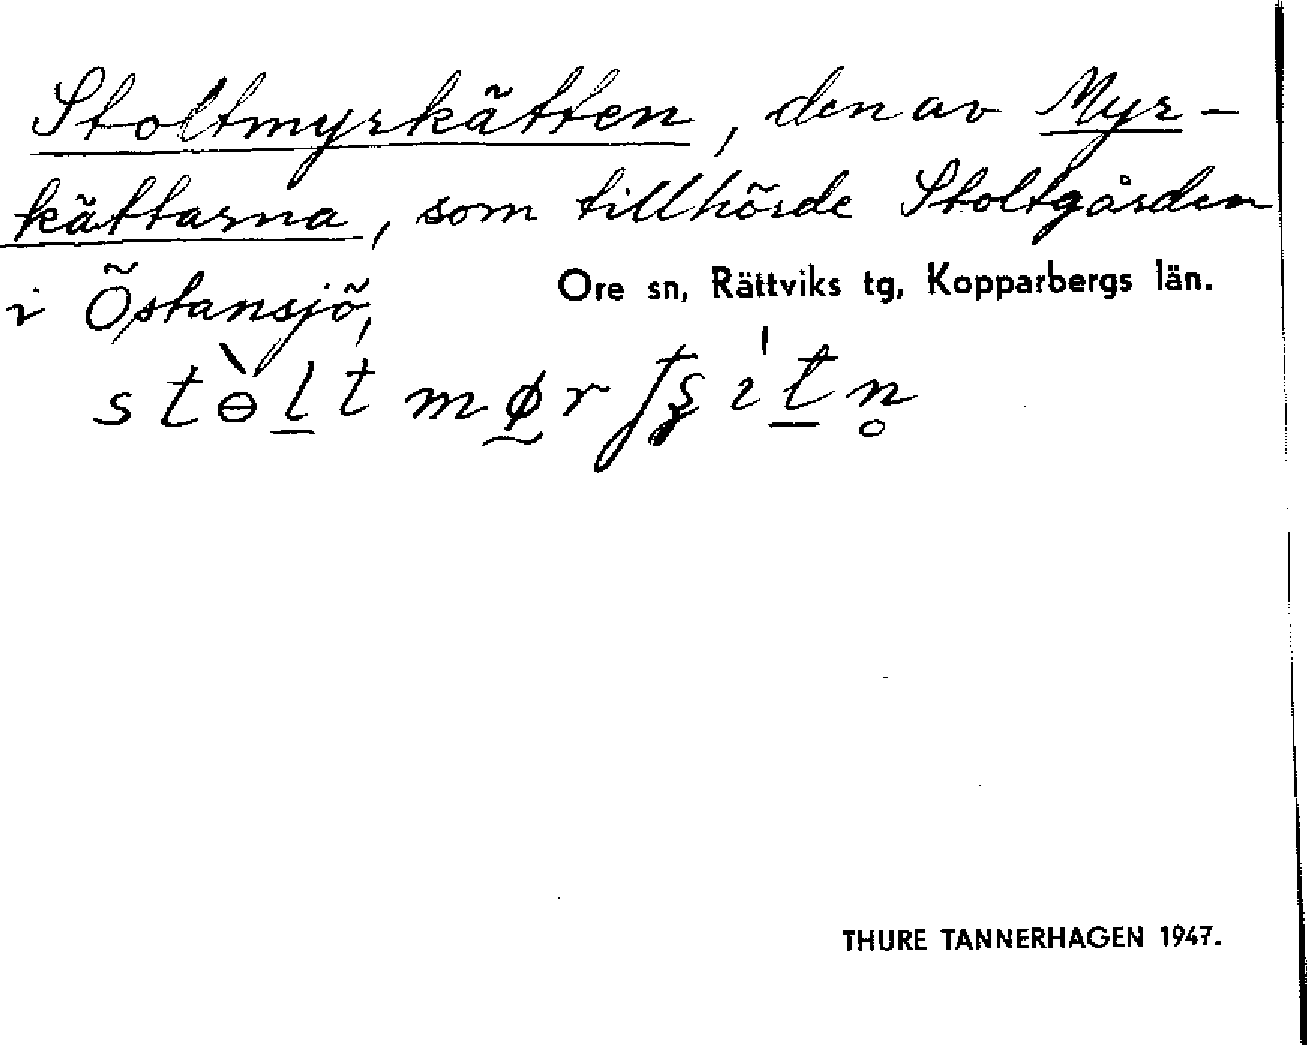 Stoltmyrkätten, den av Myr-
kättarna, som tillhörde Stoltgården
i Östansjö,
Ore sn, Rättviks tg, Kopparbergs län.
THURE TANNERHAGEN 1947.